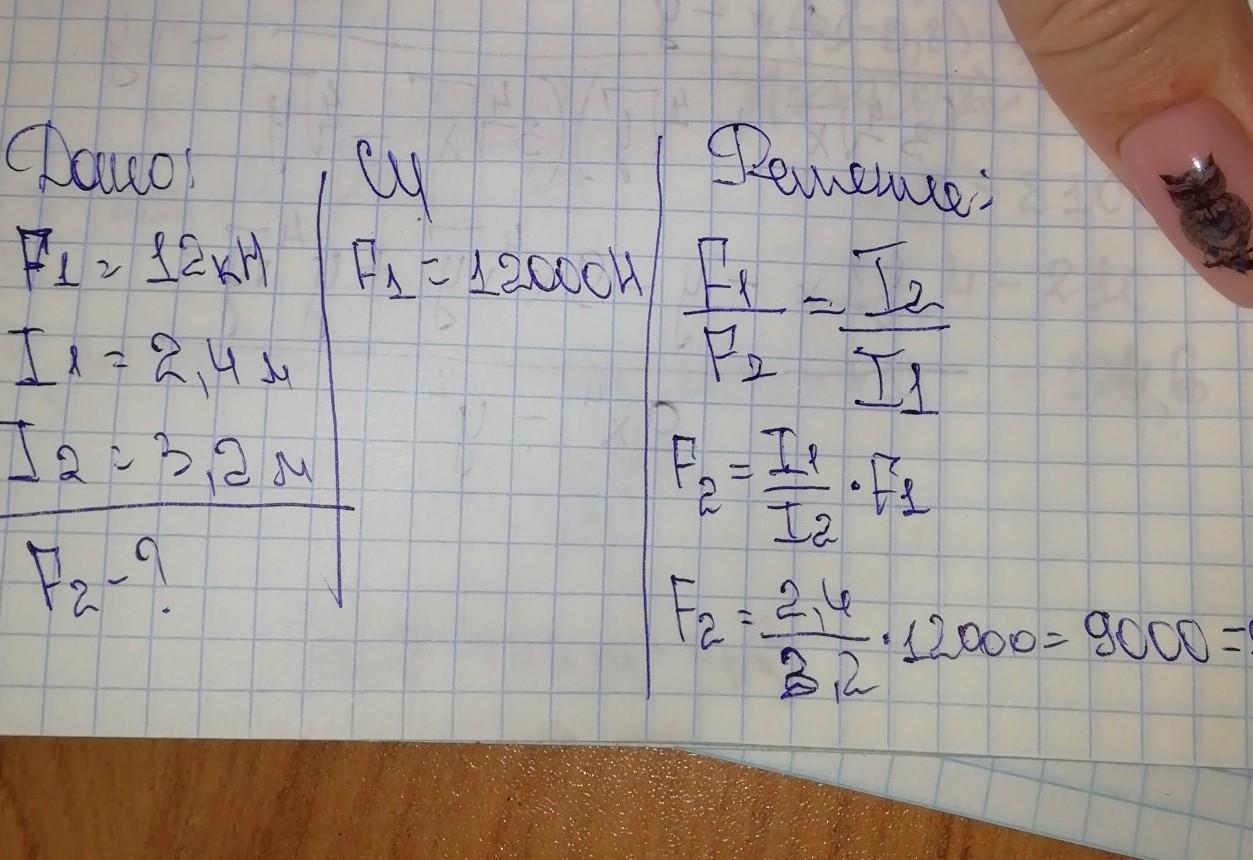 Дано:
F1 = 12кН
I1 = 2,4 м
I2 = 3,2 м
F2 - ?
СИ
F1 = 12000Н
Решение:
F1/F2 = I2/I1
F2 = I1/I2 · F1
F2 = 2,4/3,2 · 12000 = 9000 =